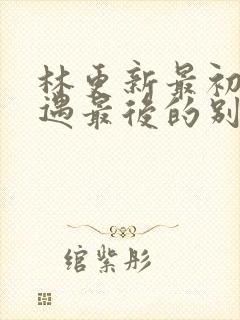 林更新最初
遇最後的别
绾紫彤